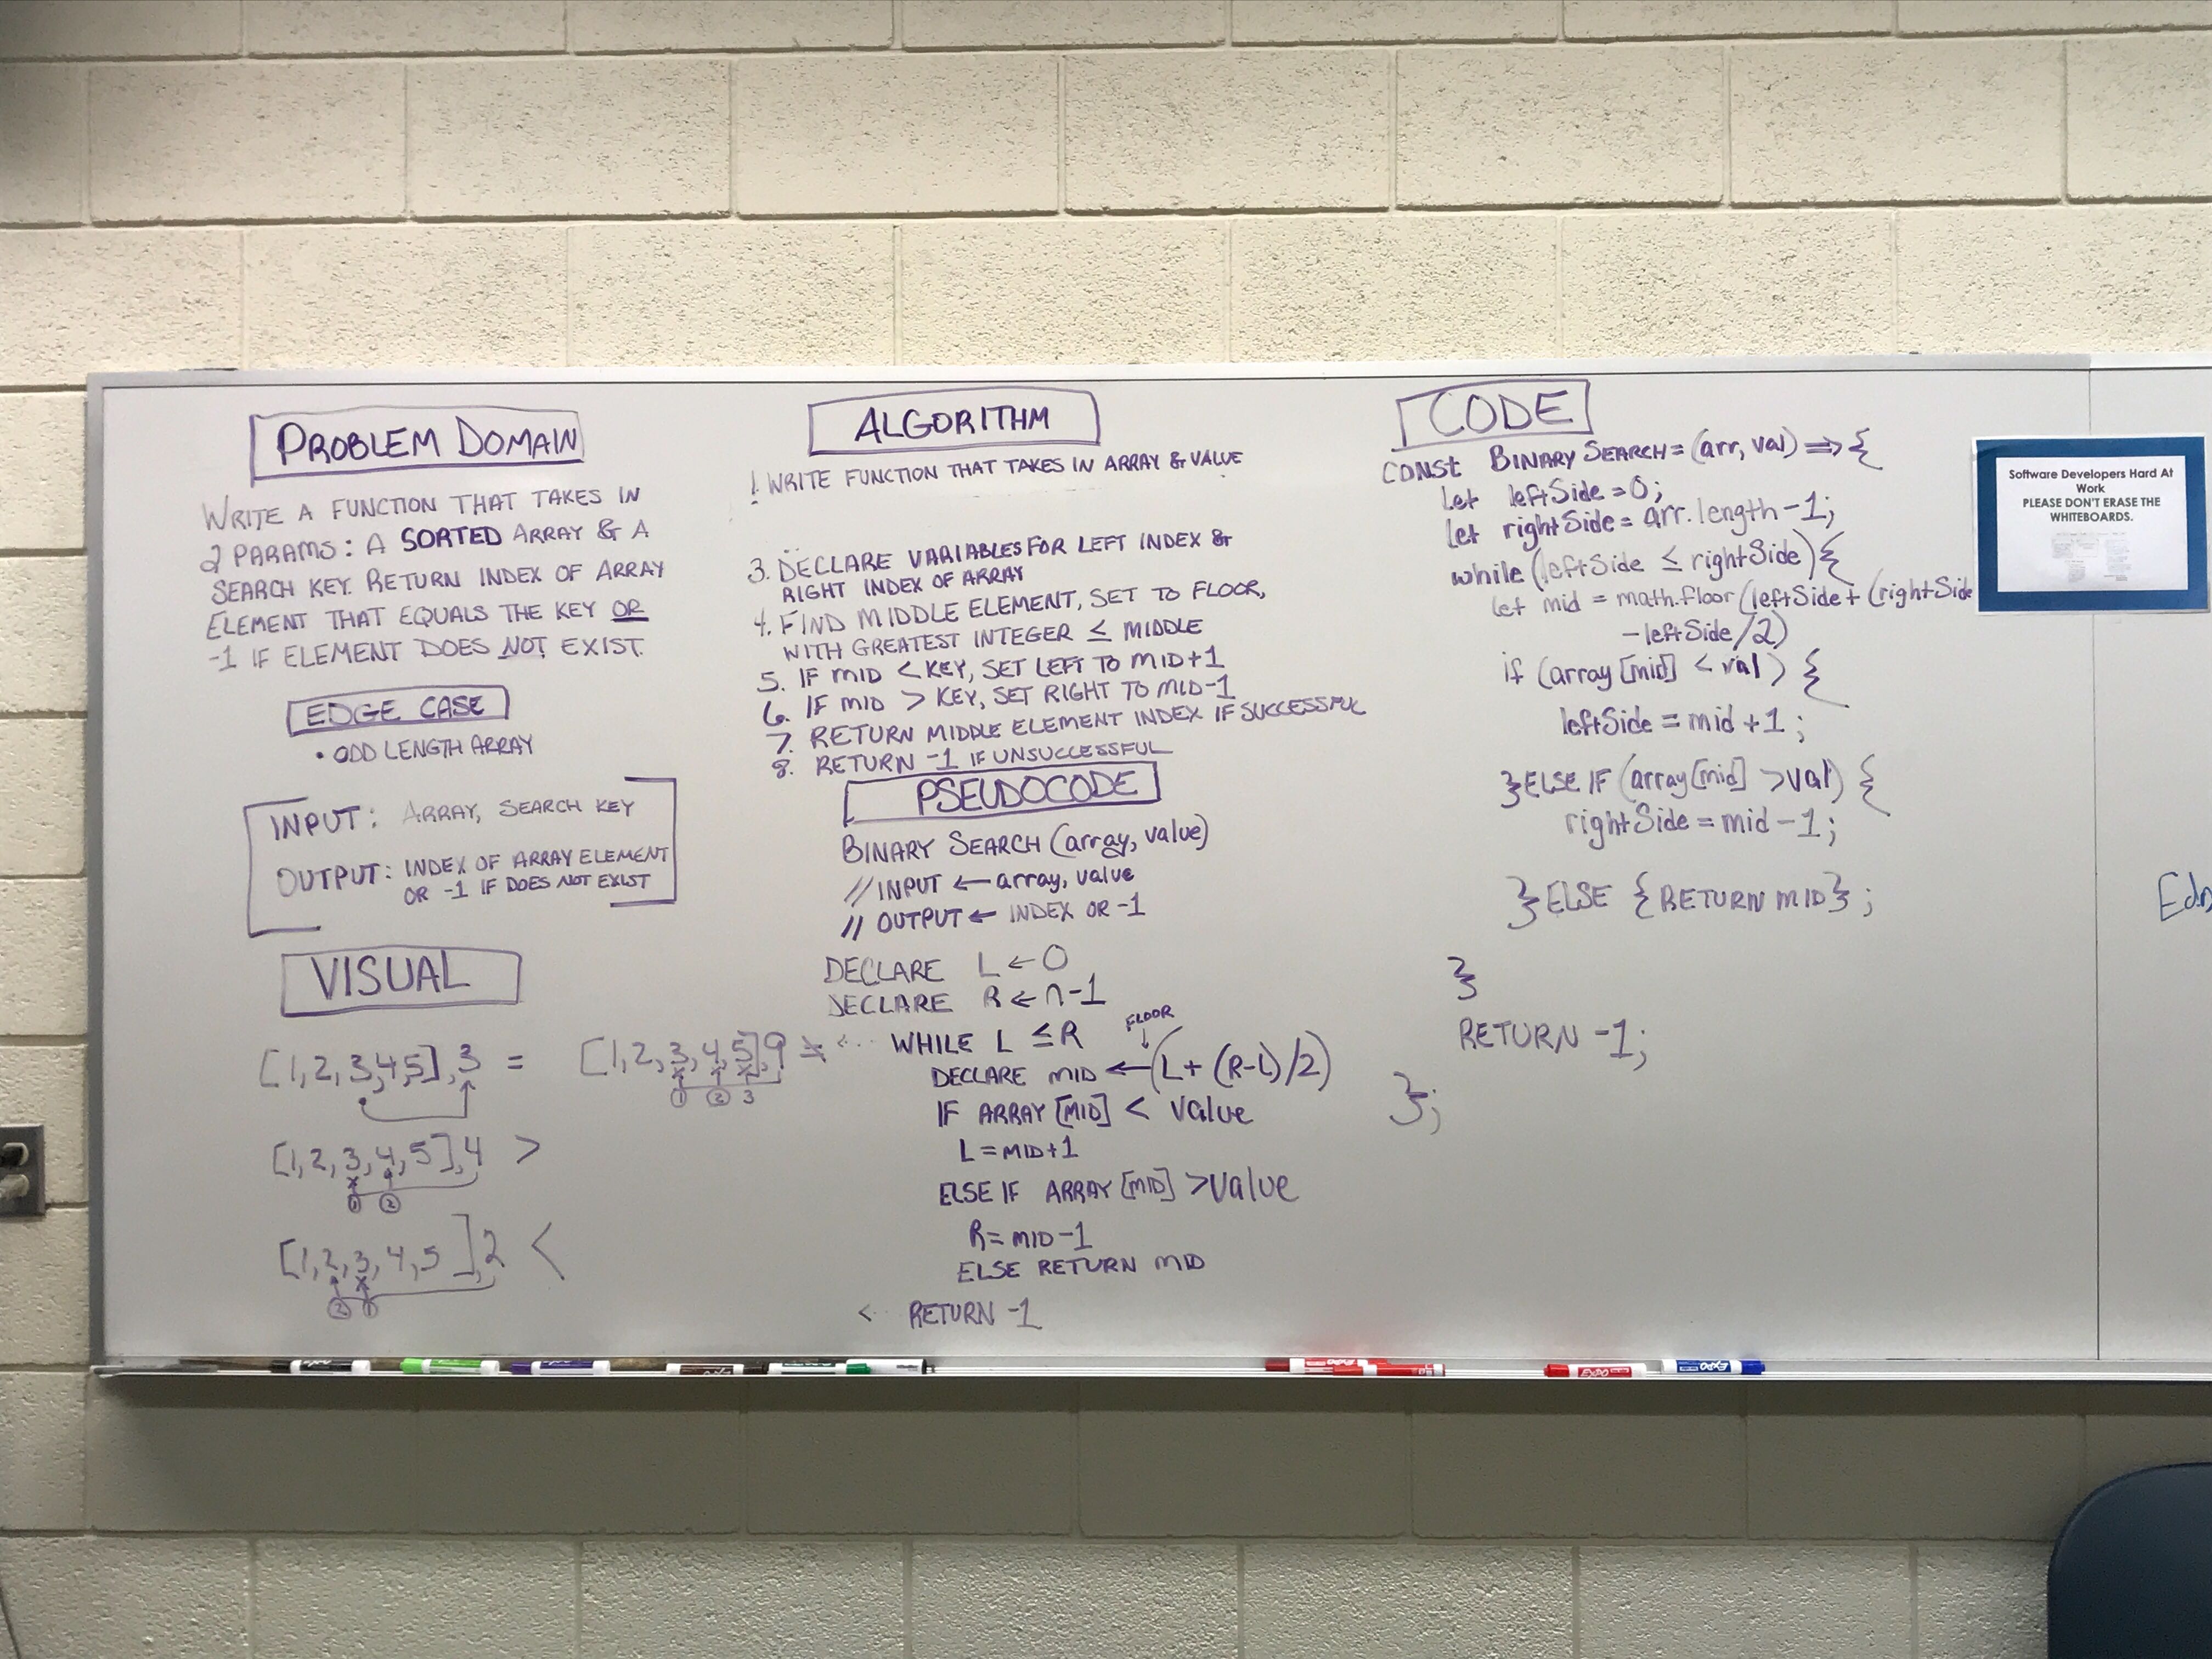 PROBLEM DOMAIN
WRITE A FUNCTION THAT TAKES IN
2 PARAMS: A SORTED ARRAY & A
SEARCH KEY. RETURN INDEX OF ARRAY
ELEMENT THAT EQUALS THE KEY OR
-1 IF ELEMENT DOES NOT EXIST.
EDGE CASE
• ODD LENGTH ARRAY
INPUT: ARRAY, SEARCH KEY
OUTPUT: INDEX OF ARRAY ELEMENT
OR -1 IF DOES NOT EXIST
VISUAL
[1,2,3,4,5],3 =
[1,2,3,4,5],9 ≠
1 2 3
[1,2,3,4,5],4 >
1 2
[1,2,3,4,5],2 <
2 1
ALGORITHM
1. WRITE FUNCTION THAT TAKES IN ARRAY & VALUE
3. DECLARE VARIABLES FOR LEFT INDEX &
RIGHT INDEX OF ARRAY
4. FIND MIDDLE ELEMENT, SET TO FLOOR,
WITH GREATEST INTEGER ≤ MIDDLE
5. IF MID < KEY, SET LEFT TO MID+1
6. IF MID > KEY, SET RIGHT TO MID-1
7. RETURN MIDDLE ELEMENT INDEX IF SUCCESSFUL
8. RETURN -1 IF UNSUCCESSFUL
PSEUDOCODE
BINARY SEARCH (array, value)
// INPUT ← array, value
// OUTPUT ← INDEX OR -1
DECLARE L ← 0
DECLARE R ← n-1
<... WHILE L ≤ R
FLOOR
↓
DECLARE MID ← (L + (R-L)/2)
IF ARRAY [MID] < value
L = MID+1
ELSE IF ARRAY [MID] > value
R = MID-1
ELSE RETURN MID
<.. RETURN -1
CODE
CONSt BINARY SEARCH = (arr, val) => {
let leftSide = 0;
let rightSide = arr.length-1;
while (leftSide ≤ rightSide) {
let mid = math.floor (leftSide + (rightSide
-leftSide/2)
if (array [mid] < val ) {
leftSide = mid +1 ;
} ELSE IF (array [mid] > val) {
rightSide = mid -1 ;
} ELSE { RETURN MID } ;
}
RETURN -1;
};
Software Developers Hard At
Work
PLEASE DON'T ERASE THE
WHITEBOARDS.